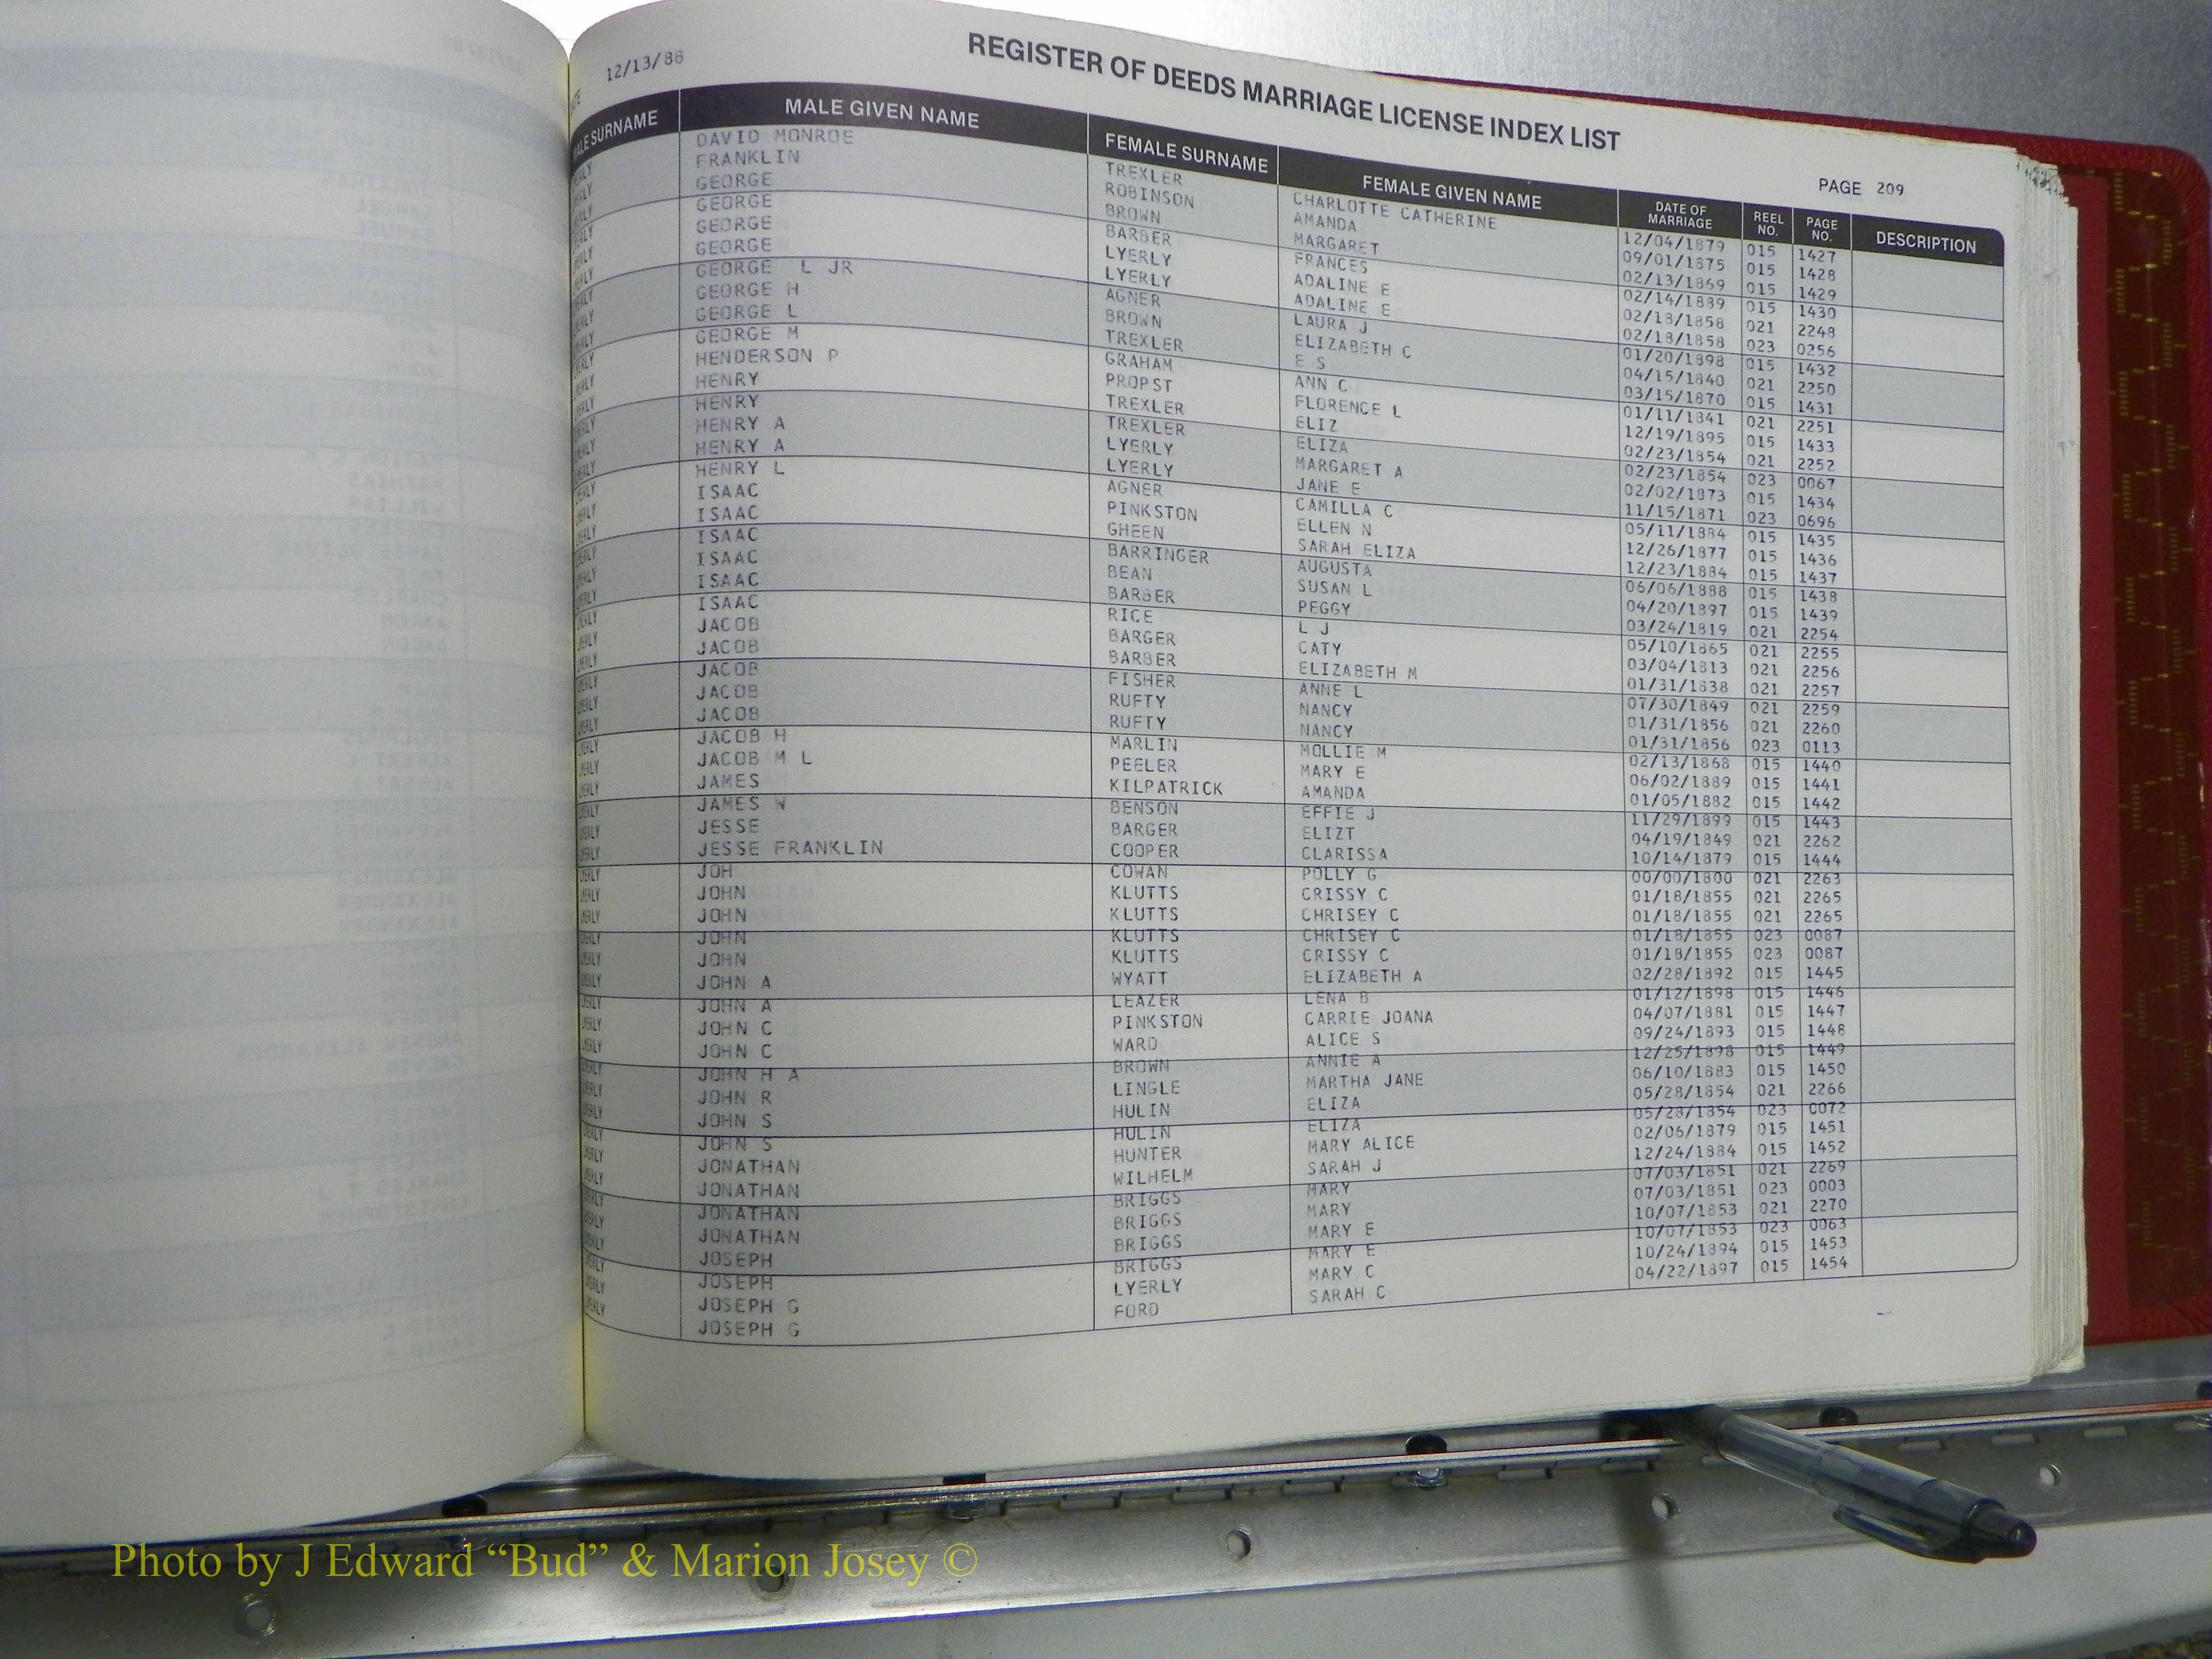 DATE 12/13/88 REGISTER OF DEEDS MARRIAGE LICENSE INDEX LIST PAGE 209
MALE SURNAME MALE GIVEN NAME FEMALE SURNAME FEMALE GIVEN NAME DATE OF MARRIAGE REEL NO. PAGE NO. DESCRIPTION
LYERLY DAVID MONROE TREXLER CHARLOTTE CATHERINE 12/04/1879 015 1427
LYERLY FRANKLIN ROBINSON AMANDA 09/01/1875 015 1428
LYERLY GEORGE BROWN MARGARET 02/13/1869 015 1429
LYERLY GEORGE BARBER FRANCES 02/14/1889 015 1430
LYERLY GEORGE LYERLY ADALINE E 02/18/1858 021 2248
LYERLY GEORGE LYERLY ADALINE E 02/18/1858 023 0256
LYERLY GEORGE L JR AGNER LAURA J 01/20/1898 015 1432
LYERLY GEORGE H BROWN ELIZABETH C 04/15/1840 021 2250
LYERLY GEORGE L TREXLER E S 03/15/1870 015 1431
LYERLY GEORGE M GRAHAM ANN C 01/11/1841 021 2251
LYERLY HENDERSON P PROPST FLORENCE L 12/19/1895 015 1433
LYERLY HENRY TREXLER ELIZ 02/23/1854 021 2252
LYERLY HENRY TREXLER ELIZA 02/23/1854 023 0067
LYERLY HENRY A LYERLY MARGARET A 02/02/1873 015 1434
LYERLY HENRY A LYERLY JANE E 11/15/1871 023 0696
LYERLY HENRY L AGNER CAMILLA C 05/11/1884 015 1435
LYERLY ISAAC PINKSTON ELLEN N 12/26/1877 015 1436
LYERLY ISAAC GHEEN SARAH ELIZA 12/23/1884 015 1437
LYERLY ISAAC BARRINGER AUGUSTA 06/06/1888 015 1438
LYERLY ISAAC BEAN SUSAN L 04/20/1897 015 1439
LYERLY ISAAC BARBER PEGGY 03/24/1819 021 2254
LYERLY ISAAC RICE L J 05/10/1865 021 2255
LYERLY JACOB BARGER CATY 03/04/1813 021 2256
LYERLY JACOB BARBER ELIZABETH M 01/31/1838 021 2257
LYERLY JACOB FISHER ANNE L 07/30/1849 021 2259
LYERLY JACOB RUFTY NANCY 01/31/1856 021 2260
LYERLY JACOB RUFTY NANCY 01/31/1856 023 0113
LYERLY JACOB H MARLIN MOLLIE M 02/13/1868 015 1440
LYERLY JACOB M L PEELER MARY E 06/02/1889 015 1441
LYERLY JAMES KILPATRICK AMANDA 01/05/1882 015 1442
LYERLY JAMES W BENSON EFFIE J 11/29/1899 015 1443
LYERLY JESSE BARGER ELIZT 04/19/1849 021 2262
LYERLY JESSE FRANKLIN COOPER CLARISSA 10/14/1879 015 1444
LYERLY JOH COWAN POLLY G 00/00/1800 021 2263
LYERLY JOHN KLUTTS CRISSY C 01/18/1855 021 2265
LYERLY JOHN KLUTTS CHRISEY C 01/18/1855 021 2265
LYERLY JOHN KLUTTS CHRISEY C 01/18/1855 023 0087
LYERLY JOHN KLUTTS CRISSY C 01/18/1855 023 0087
LYERLY JOHN A WYATT ELIZABETH A 02/28/1892 015 1445
LYERLY JOHN A LEAZER LENA B 01/12/1898 015 1446
LYERLY JOHN C PINKSTON CARRIE JOANA 04/07/1881 015 1447
LYERLY JOHN C WARD ALICE S 09/24/1893 015 1448
LYERLY JOHN H A BROWN ANNIE A 12/25/1898 015 1449
LYERLY JOHN R LINGLE MARTHA JANE 06/10/1883 015 1450
LYERLY JOHN S HULIN ELIZA 05/28/1854 021 2266
LYERLY JOHN S HULIN ELIZA 05/28/1854 023 0072
LYERLY JONATHAN HUNTER MARY ALICE 02/06/1879 015 1451
LYERLY JONATHAN WILHELM SARAH J 12/24/1884 015 1452
LYERLY JONATHAN BRIGGS MARY 07/03/1851 021 2269
LYERLY JONATHAN BRIGGS MARY 07/03/1851 023 0003
LYERLY JOSEPH BRIGGS MARY E 10/07/1853 021 2270
LYERLY JOSEPH BRIGGS MARY E 10/07/1853 023 0063
LYERLY JOSEPH G LYERLY MARY C 10/24/1894 015 1453
LYERLY JOSEPH G FORD SARAH C 04/22/1897 015 1454
Photo by J Edward “Bud” & Marion Josey ©